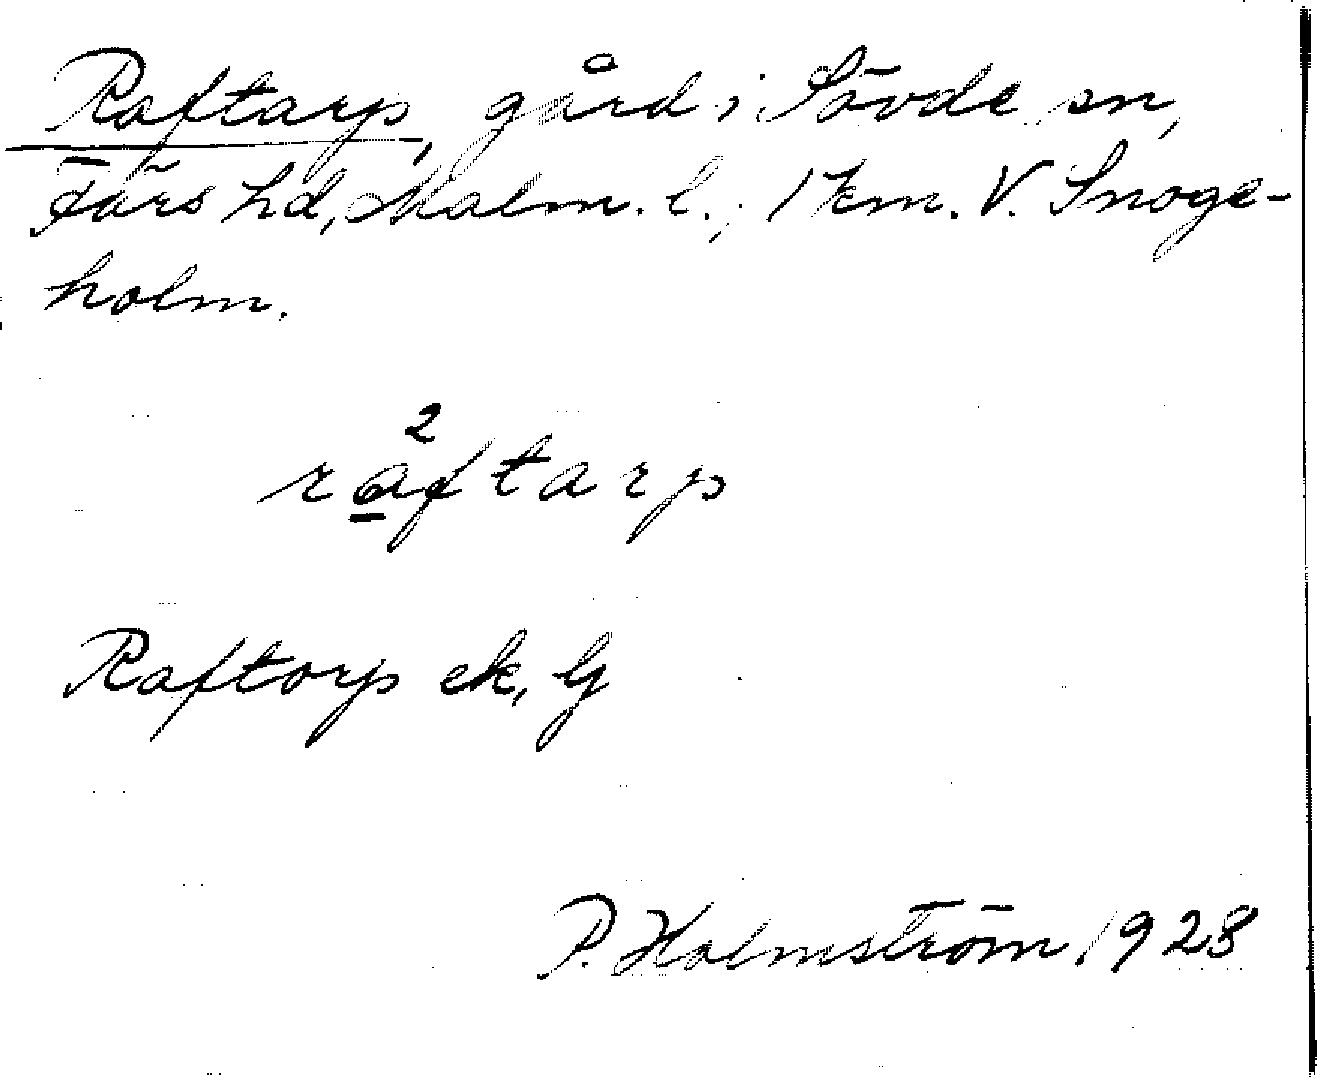 Raftarp, gård i Sövde sn,
Färs hd, Malm. l.; 1 km. V. Snoge-
holm.
2
raftarp
Raftorp ek, G
P. Holmström 1928